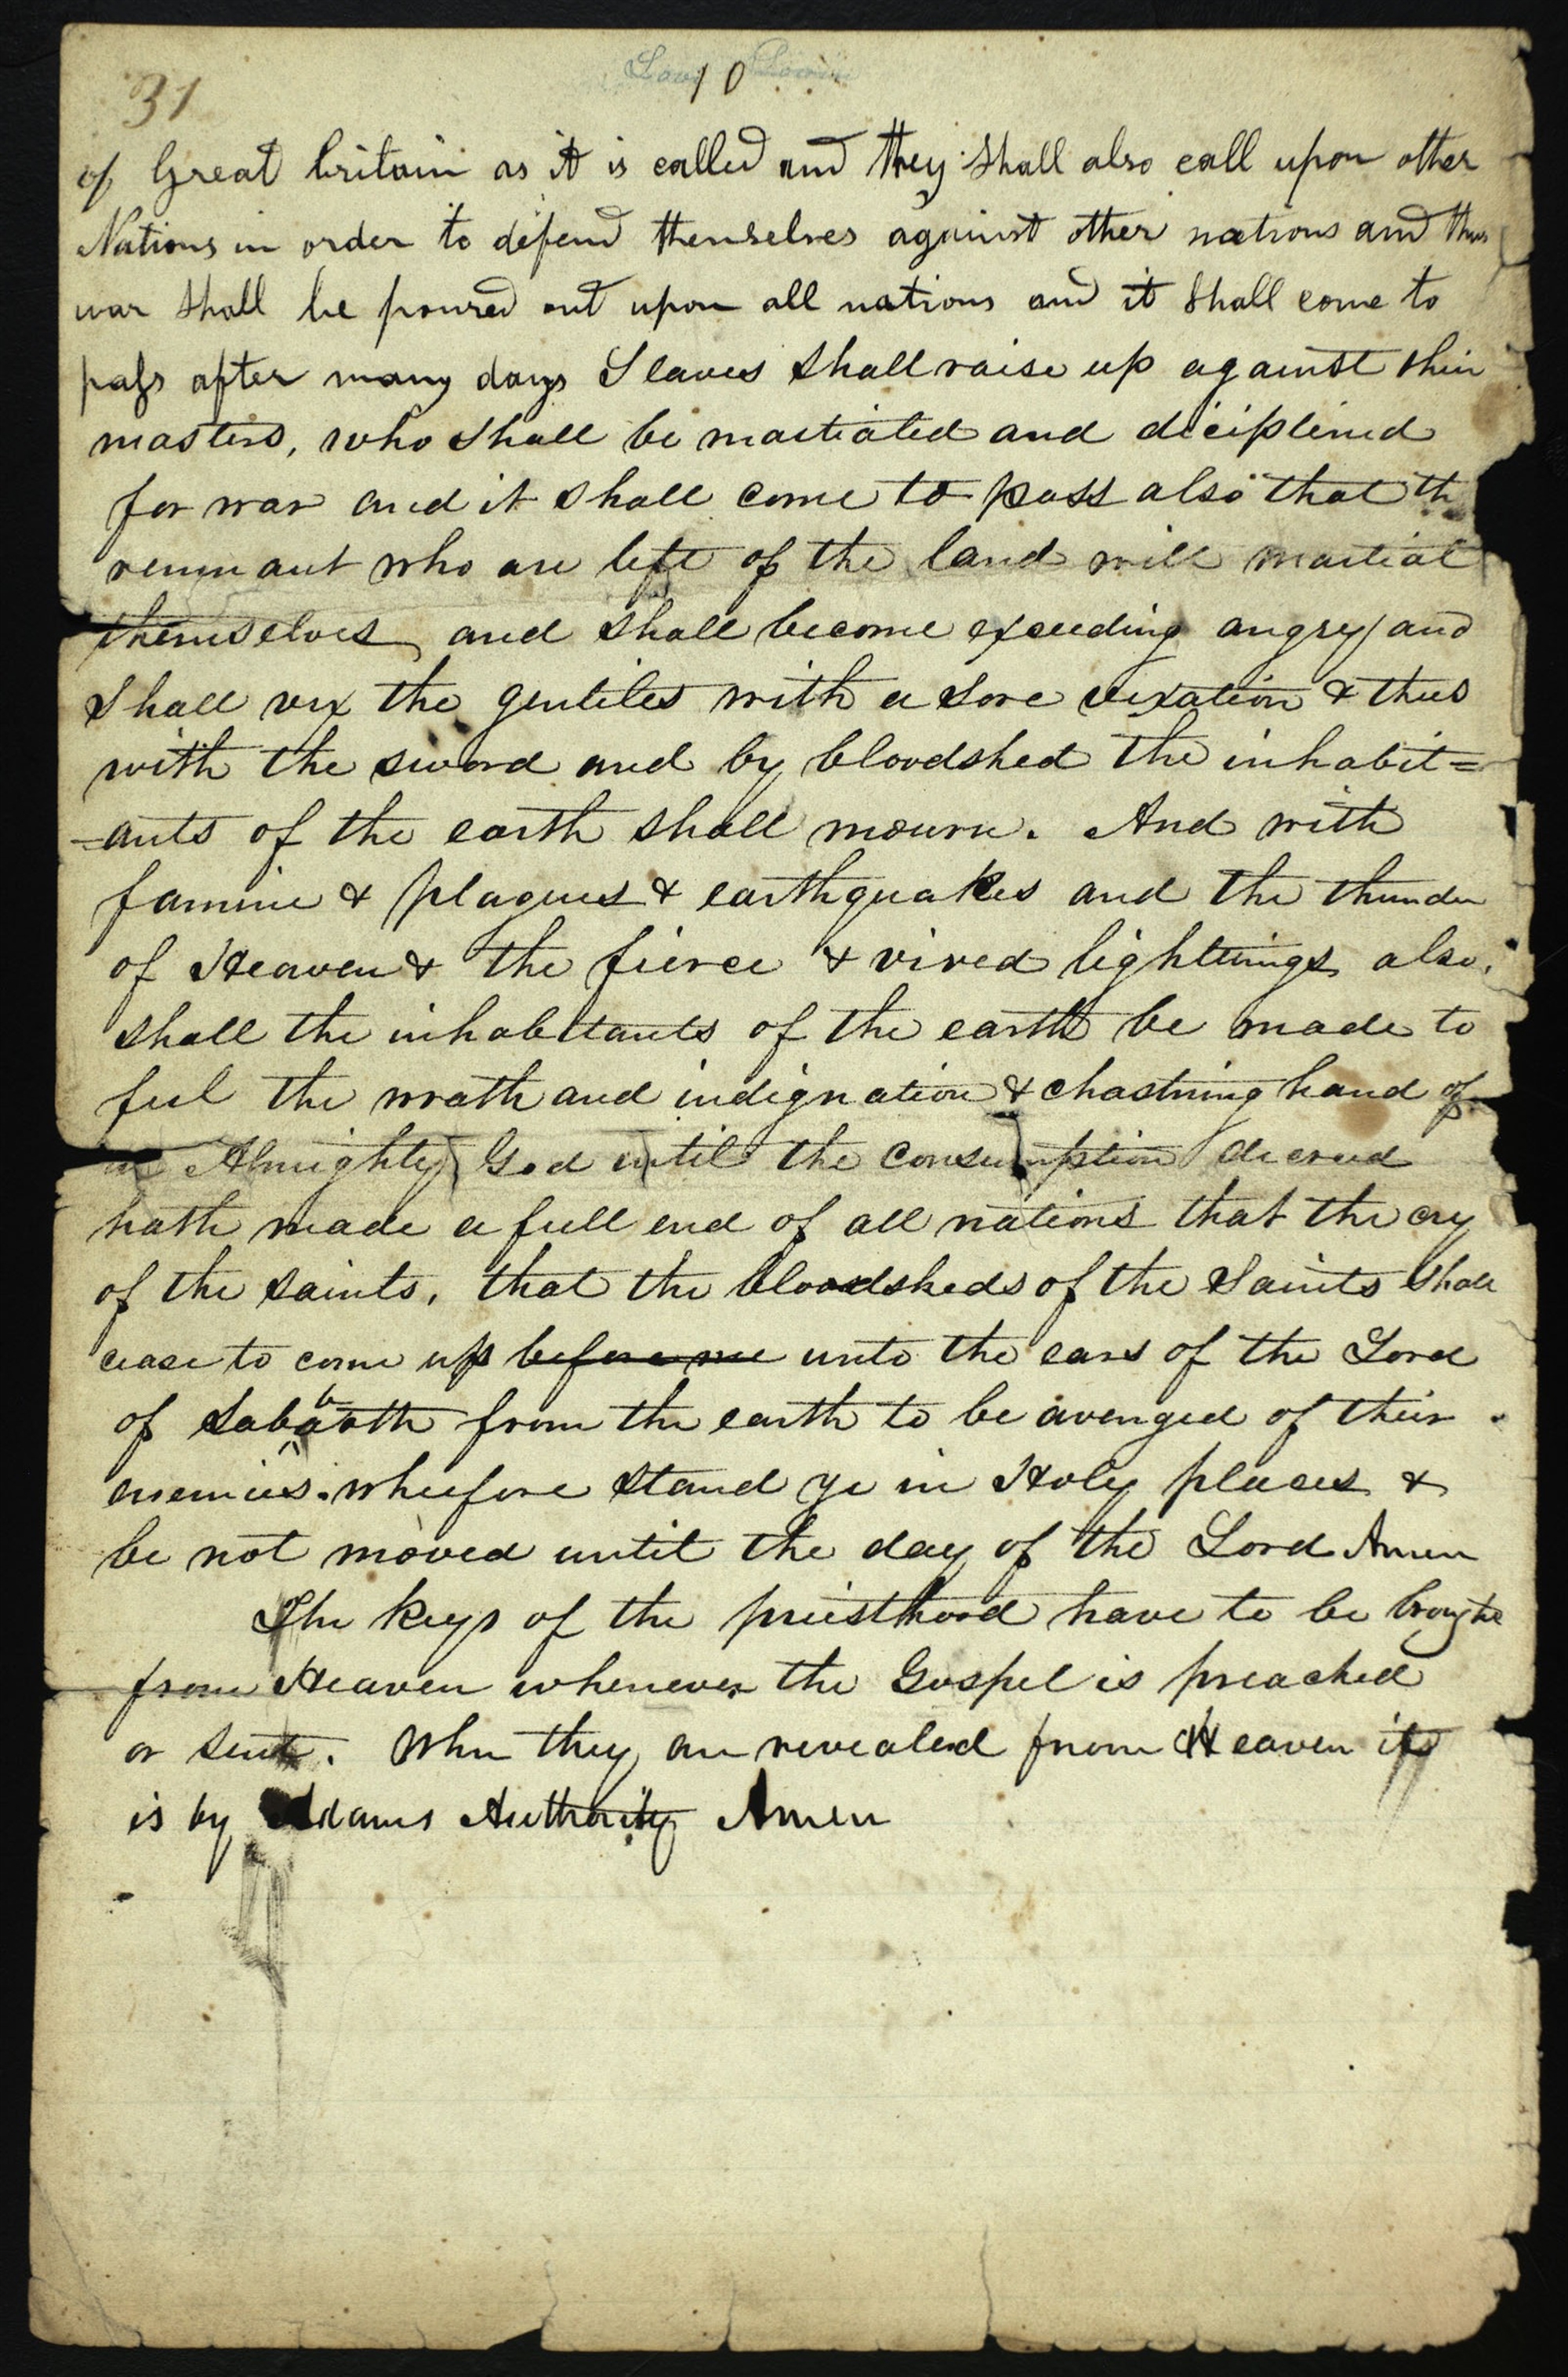 31
10
of Great britain as it is called and they shall also call upon other
Nations in order to defend themselves against other nations and thus
war shall be poured out upon all nations and it shall come to
pass after many days Slaves shall raise up against thier
masters, who shall be martialed and diciplined
for war and it shall come to pass also that th
remnant who are left of the land will martial
themselves, and shall become exceeding angry and
shall vex the gentiles with a sore vexation & thus
with the sword and by bloodshed the inhabit=
=ants of the earth shall mourn. And with
famine & plagues & earthquakes and the thunder
of Heaven & the fierce & vived lighttnings also,
shall the inhabitants of the earth be made to
feel the wrath and indignation & chastning hand of
an Almighty God until the consumption decreed
hath made a full end of all nations that the cry
of the saints, that the bloodsheds of the Saints shall
cease to come up before me unto the ears of the Lord
of Sabbaoth from the earth to be avenged of their
enemies. wherefore stand ye in Holy places &
be not moved until the day of the Lord Amen
The keys of the priesthood have to be brought
from Heaven whenever the Gospel is preached
or sent. When they are revealed from Heaven it
is by Adams Authority Amen